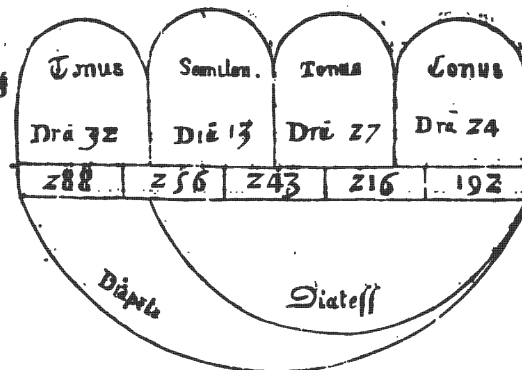 Tonus Semiton. Tonus Tonus
Drā 32 Diē 13 Drē 27 Drā 24
288 256 243 216 192
Diapēte Diateſſ